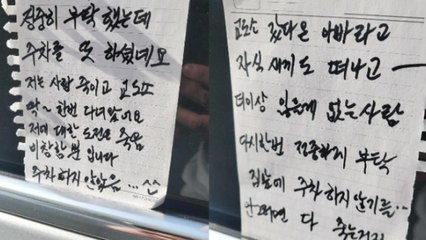 정중히 부탁 했는데
주차를 또 하셨네요
저는 사람 죽이고 교도소
딱~ 한번 다녀왔어요
저에 대한 도전은 죽음
비참할 뿐 입니다
주차 하지 않았음
교도소 갔다온 아빠라고
자식 새끼도 떠나고
더이상 잃을게 없는 사람
다시한번 정중하게 부탁
집앞에 주차 하지 않기를..
다 죽는거